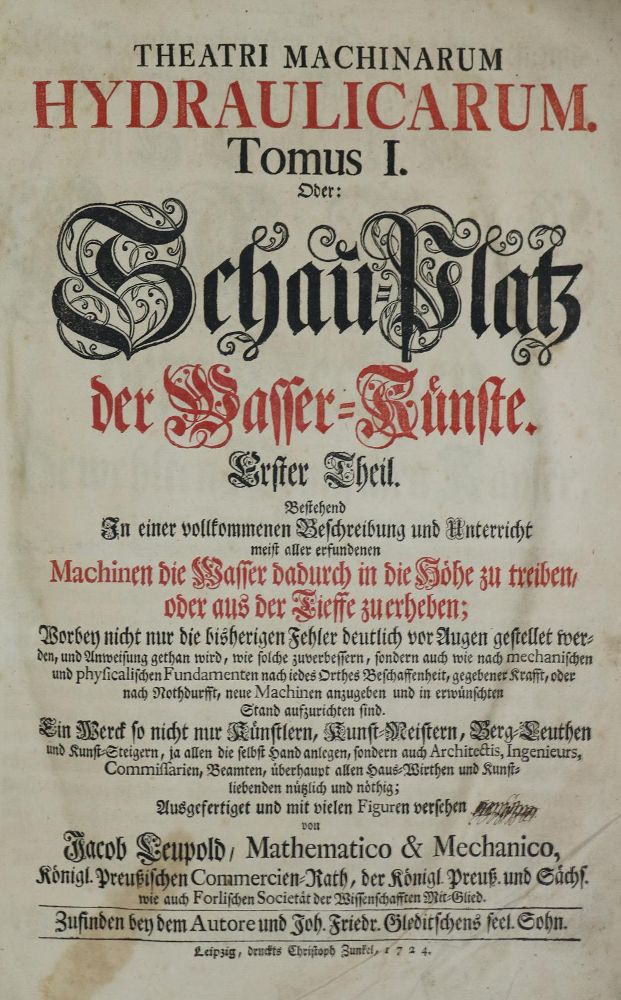 THEATRI MACHINARUM
HYDRAULICARUM.
Tomus I.
Oder:
Schau=Platz
der Wasser=Künste.
Erster Theil.
Bestehend
In einer vollkommenen Beschreibung und Unterricht
meist aller erfundenen
Machinen die Wasser dadurch in die Höhe zu treiben/
oder aus der Tieffe zu erheben;
Worbey nicht nur die bisherigen Fehler deutlich vor Augen gestellet wer-
den, und Anweisung gethan wird, wie solche zuverbessern, sondern auch wie nach mechanischen
und physicalischen Fundamenten nach iedes Orthes Beschaffenheit, gegebener Krafft, oder
nach Nothdurfft, neue Machinen anzugeben und in erwünschten
Stand aufzurichten sind.
Ein Werck so nicht nur Künstlern, Kunst-Meistern, Berg-Leuthen
und Kunst-Steigern, ja allen die selbst Hand anlegen, sondern auch Architectis, Ingenieurs,
Commissarien, Beamten, überhaupt allen Haus-Wirthen und Kunst-
liebenden nützlich und nöthig;
Ausgefertiget und mit vielen Figuren versehen
von
Jacob Leupold/ Mathematico & Mechanico,
Königl. Preußischen Commercien-Rath, der Königl. Preuß. und Sächs.
wie auch Forlischen Societät der Wissenschafften Mit-Glied.
Zufinden bey dem Autore und Joh. Friedr. Gleditschens seel. Sohn.
Leipzig, druckts Christoph Zunkel, 1724.